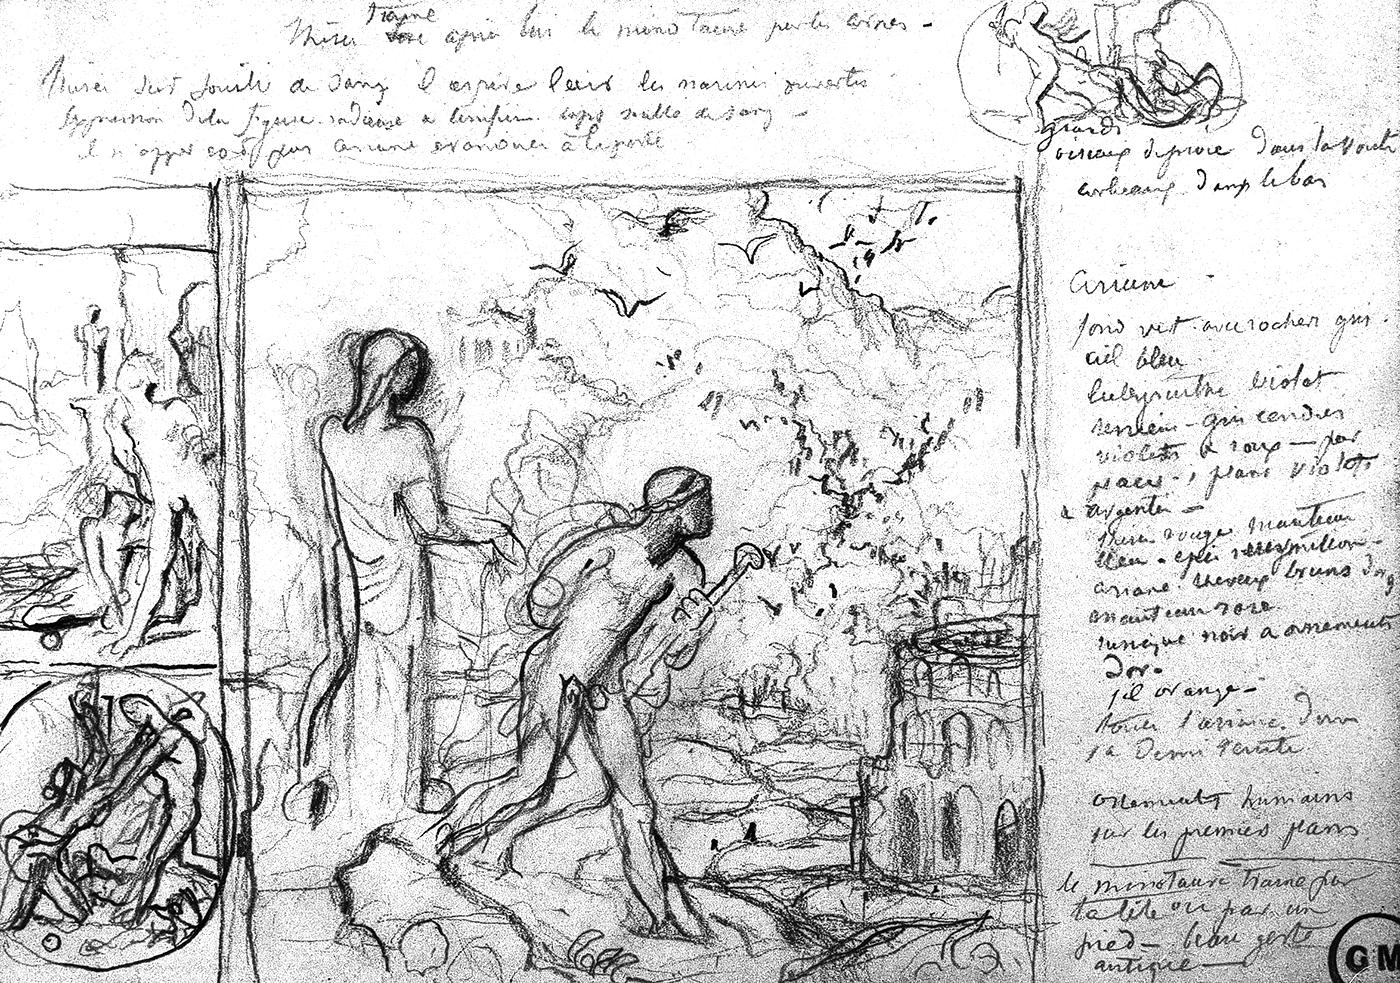 Thésée traine après lui le minotaure par les cornes -
Thésée sort souillé de sang il aspire l'air les narines ouvertes
expression de la figure. corps souillé de sang -
il n'apperçoit pas Ariane évanouie à la porte
grands
oiseaux de proie dans la voute
corbeaux dans le bas
Ariane -
fond vert avec rocher gris.
ciel bleu
labyrinthe violet
terrain - gris cendrés
violets & roux - par
places, plans violets
& argentés -
Thésée rouge manteau
bleu - vermillon -
ariane cheveux bruns d'or
manteau rose
tunique noir a ornements
d'or -
orange -
toute l'ariane dans
la Demi teinte
ossements humains
sur les premiers plans
le minotaure trainé par
la tête ou par un
pied - beau geste
antique -
GM